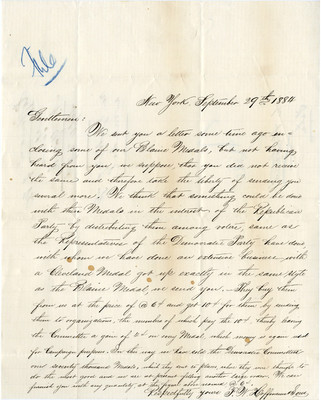 File
New York September 29th 1884
Gentlemen:
We sent you a letter some time ago en-
closing some of our Blaine Medals, but not having
heard from you, we suppose that you did not receive
the same and therefore take the liberty of sending you
several more. We think that something could be done
with these Medals in the interest of the Republican
Party, by distributing them among voters, same as
the Representatives of the Democratic Party have done
with whom we have done an extensive business with
a Cleveland Medal got up exactly in the same style
as the Blaine Medal, we send you. They buy them
from us at the price of @ 6¢ and get 10¢ for them by sending
them to organizations, the members of which pay the 10¢, thereby leaving
the Committee a gain of 4¢ on every Medal, which money is again used
for Campaign purposes. In this way we have sold the Democratic Committee
one seventy thousand Medals, which they are so places when new things to
do the work good and we are at present filling another large order. We can
furnish you with any quantity at the price above named @ 6¢.
Respectfully yours